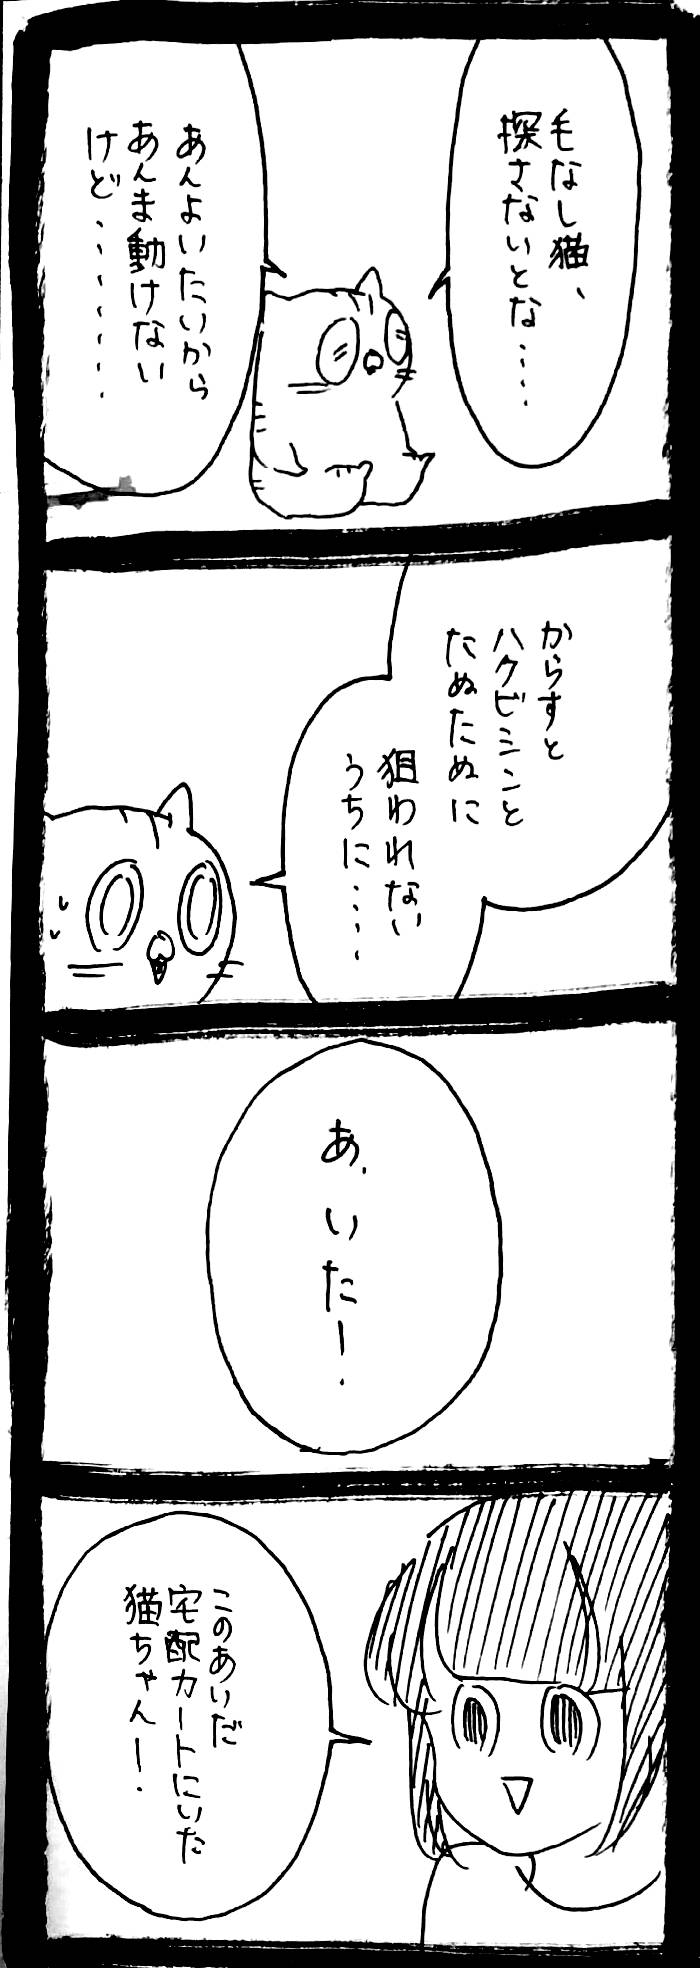 毛なし猫、
探さないとな....
あんよいたいから
あんま動けない
けど.......
からすと
ハクビシンと
たぬたぬに
狙われない
うちに.....
あ、いた!
このあいだ
宅配カートにいた
猫ちゃん!